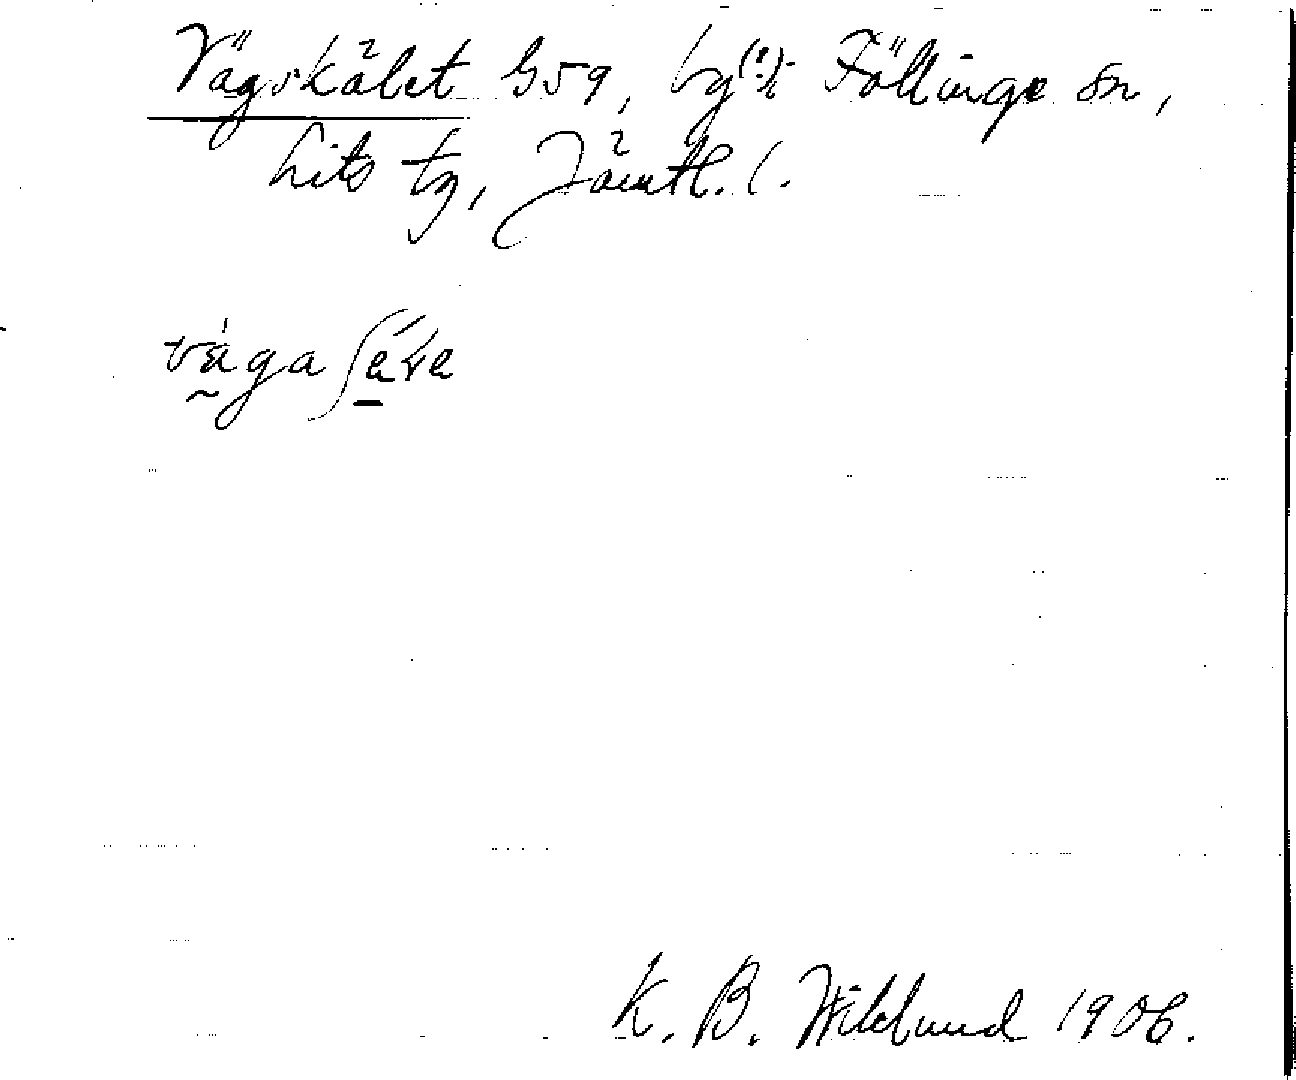 Vägskälet G59, by(?), Föllinge sn,
Lits tg, Jämtl. l.
vägaʃäva
K. B. Wiklund 1906.